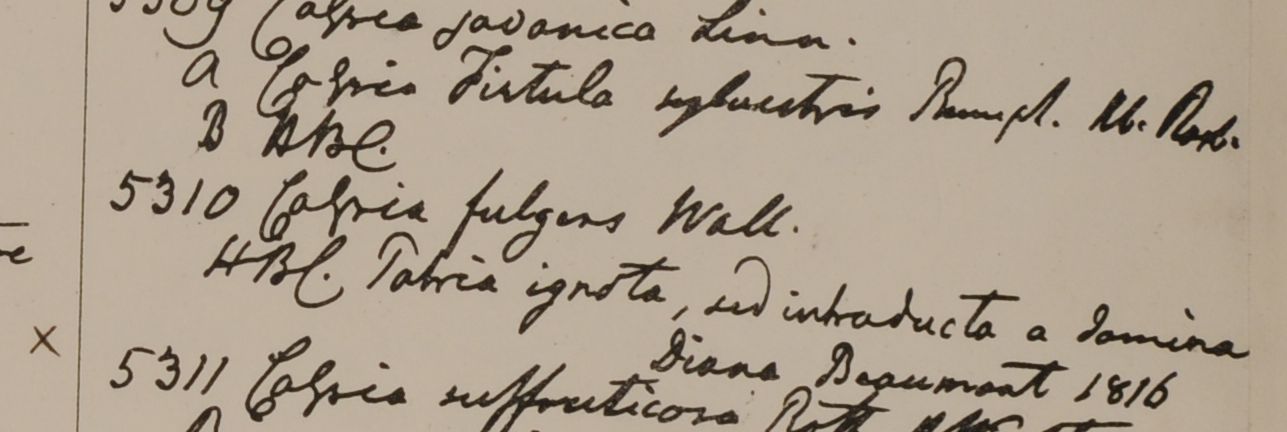 5309 Cassia javanica Linn.
a Cassia Fistula sylvestris Rumph. Hb. Roxb.
B HBC.
5310 Cassia fulgens Wall.
HBC. Patria ignota, sed introducta a domina
Diana Beaumont 1816
X
5311 Cassia suffruticosa Roth